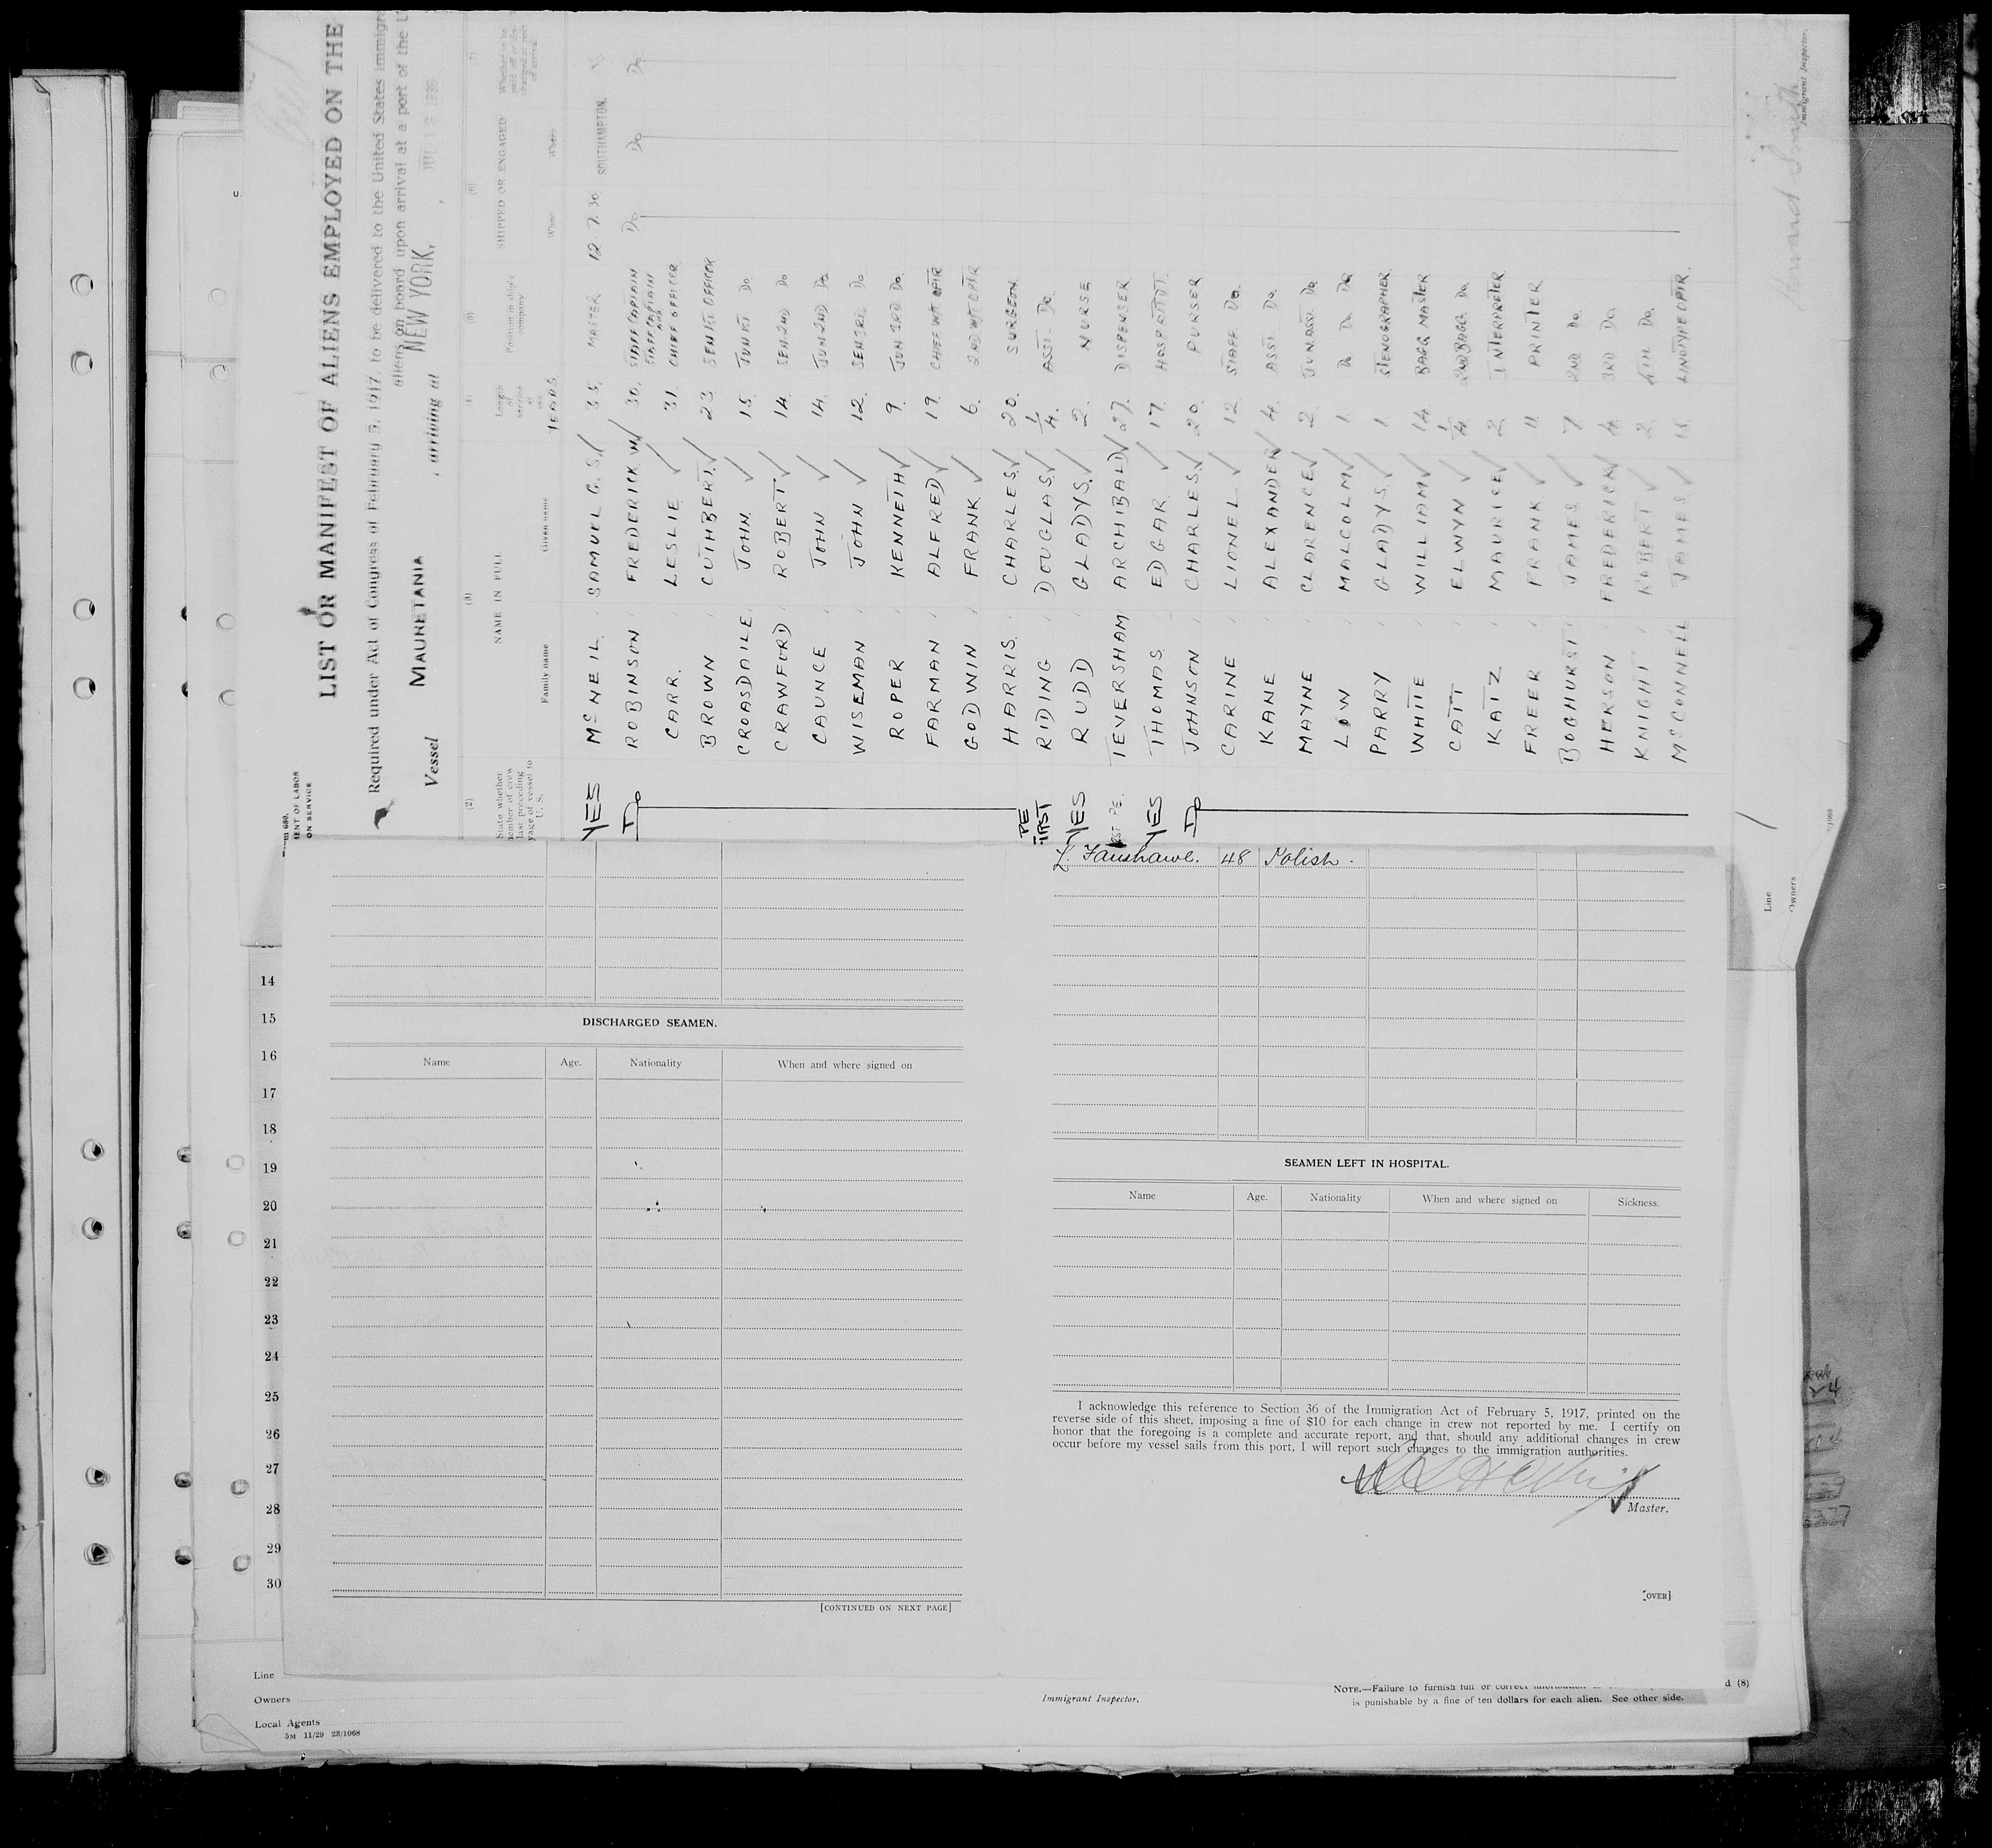 LIST OR MANIFEST OF ALIENS EMPLOYED ON THE
Required under Act of Congress of February 5, 1917, to be delivered to the United States immigra
aliens on board upon arrival at a port of the U
Vessel MAURETANIA , arriving at NEW YORK,
ENT OF LABOR
ON SERVICE
(2) (3) (4) (5) (6) (7)
State whether member of crew last preceding voyage of vessel to U. S.
NAME IN FULL
Family name Given name
Length of service at sea YEARS
Position in ship's company
SHIPPED OR ENGAGED
When Where
YES McNEIL SAMUEL G. S. 35. MASTER 12.7.30 SOUTHAMPTON.
Do ROBINSON FREDERICK W. 30. STAFF CAPTAIN Do Do Do
CARR. LESLIE 31. STAFF CAPTAIN AND CHIEF OFFICER
BROWN CUTHBERT. 23. SEN 1ST OFFICER
CROASDAILE. JOHN. 15 JUN 1ST Do
CRAWFORD ROBERT 14. SEN. 2ND Do
CAUNCE JOHN 14. JUN 2ND Do
WISEMAN JOHN 12. SEN. 3RD. Do.
ROPER KENNETH 9. JUN 3RD Do.
FARMAN ALFRED 19. CHIEF W/T OPTR
GODWIN FRANK. 6. 2ND W/T OPTR
HARRIS. CHARLES. 20. SURGEON.
PE FIRST RIDING DOUGLAS. 1/4. ASST. Do.
YES RUDD GLADYS. 2. NURSE
TEVERSHAM ARCHIBALD 27. DISPENSER
YES THOMAS. EDGAR 17. HOSP ATTDT.
Do JOHNSON CHARLES. 20. PURSER
CARINE LIONEL 12. STAFF Do.
KANE ALEXANDER 4. ASST. Do.
MAYNE CLARENCE 2. JUN. ASST. Do
LOW MALCOLM 1. Do. Do Do
PARRY GLADYS. 1. STENOGRAPHER
WHITE WILLIAM 14 BAGG. MASTER
CATT ELWYN 1/4 2ND BAGG. Do.
KATZ MAURICE 2 INTERPRETER
FREER FRANK 11 PRINTER
BOGHURST JAMES 7 2ND Do.
HERSON FREDERICK 4 3RD Do.
KNIGHT ROBERT 2. 4TH. Do.
McCONNELL JAMES 15 LINOTYPE OPTR.
Immigrant Inspector.
Line
Owners
Fanshawe. 48 Polish.
14
15
16
17
18
19
20
21
22
23
24
25
26
27
28
29
30
DISCHARGED SEAMEN.
Name Age. Nationality When and where signed on
[CONTINUED ON NEXT PAGE]
SEAMEN LEFT IN HOSPITAL.
Name Age. Nationality When and where signed on Sickness.
I acknowledge this reference to Section 36 of the Immigration Act of February 5, 1917, printed on the
reverse side of this sheet, imposing a fine of $10 for each change in crew not reported by me. I certify on
honor that the foregoing is a complete and accurate report, and that, should any additional changes in crew
occur before my vessel sails from this port, I will report such changes to the immigration authorities.
Master.
[OVER]
Line
Owners
Local Agents
5M 11/29 23/1068
Immigrant Inspector.
NOTE.—Failure to furnish full or correct d (8)
is punishable by a fine of ten dollars for each alien. See other side.